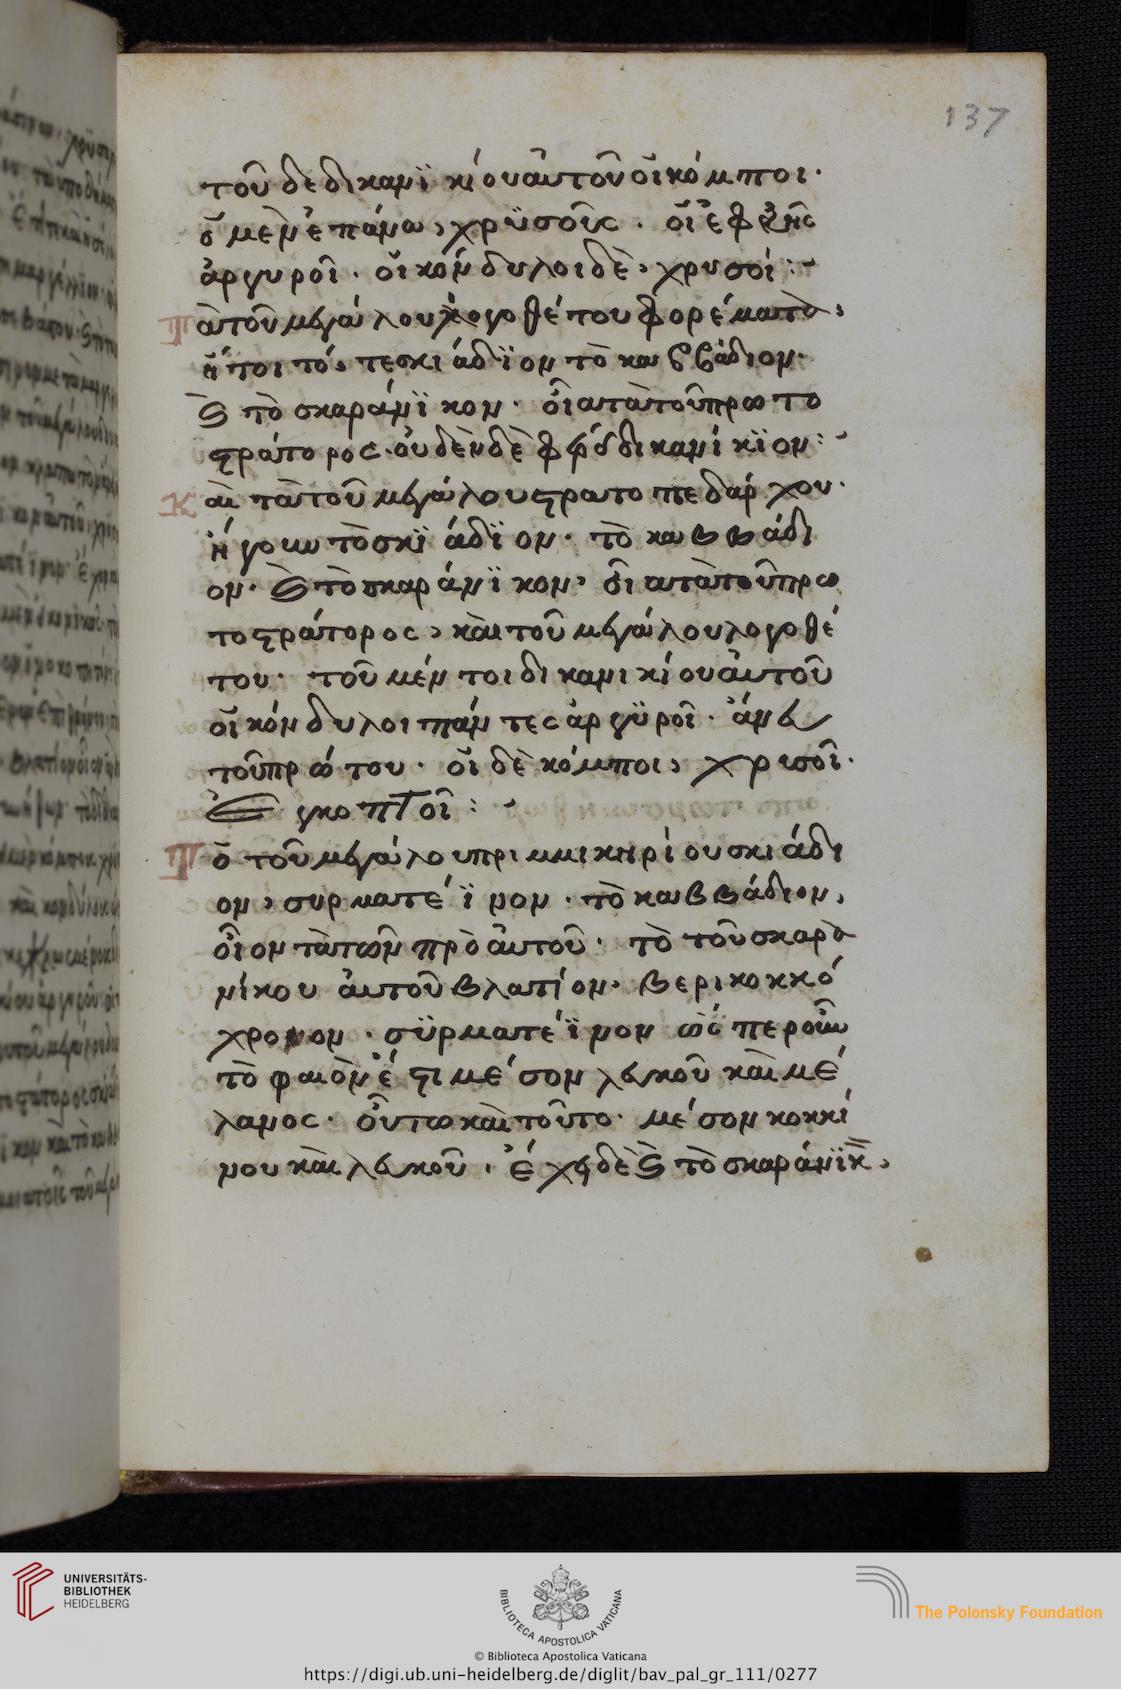 137
τοῦ δὲ δικανϊκίου αὐτοῦ οἱ κόμποι·
ὁ μὲν ἐπάνω, χρϋσοῦς· οἱ ἐφεξῆς
ἀργυροῖ· οἱ κόνδυλοι δὲ, χρυσοί:
Τὰ τοῦ μεγάλου λογοθέτου φορέματα,
ἤτοι τό, τε σκιάδϊον τὸ καββάδιον·
καὶ τὸ σκαράνϊκον· οἷα τὰ τοῦ πρωτο
στράτορος· οὐδὲν δὲ φέρει δικανίκϊον:
Καὶ τὰ τοῦ μεγάλου στρατοπεδάρχου·
ἤγουν τὸ σκϊάδϊον· τὸ καββάδι
ον· καὶ τὸ σκαράνϊκον, οἷα τὰ τοῦ πρω
τοστράτορος, καὶ τοῦ μεγάλου λογοθέ
του· τοῦ μέντοι δικανικίου αὐτοῦ
οἱ κόνδυλοι πάντες ἀργϋροῖ· ἄνευ
τοῦ πρώτου· οἱ δὲ κόμποι, χρυσοῖ·
ἐγκοπτοῖ:
Τὸ τοῦ μεγάλου πριμμικηρίου σκιάδι
ον, συρματέϊνον· τὸ καββάδιον,
οἷον τὰ τῶν πρὸ αὐτοῦ· τὸ τοῦ σκαρα
νίκου αὐτοῦ βλατίον· βερικοκκό
χροιον· σϋρματέϊνον ὥσπερ οὖν
τὸ φαιὸν ἐστι μέσον λευκοῦ καὶ μέ
λανος· οὕτω καὶ τοῦτο· μέσον κοκκί
νου καὶ λευκοῦ· ἔχει δὲ καὶ τὸ σκαράνϊκον,
UNIVERSITÄTS-
BIBLIOTHEK
HEIDELBERG
BIBLIOTECA APOSTOLICA VATICANA
The Polonsky Foundation
© Biblioteca Apostolica Vaticana
https://digi.ub.uni-heidelberg.de/diglit/bav_pal_gr_111/0277